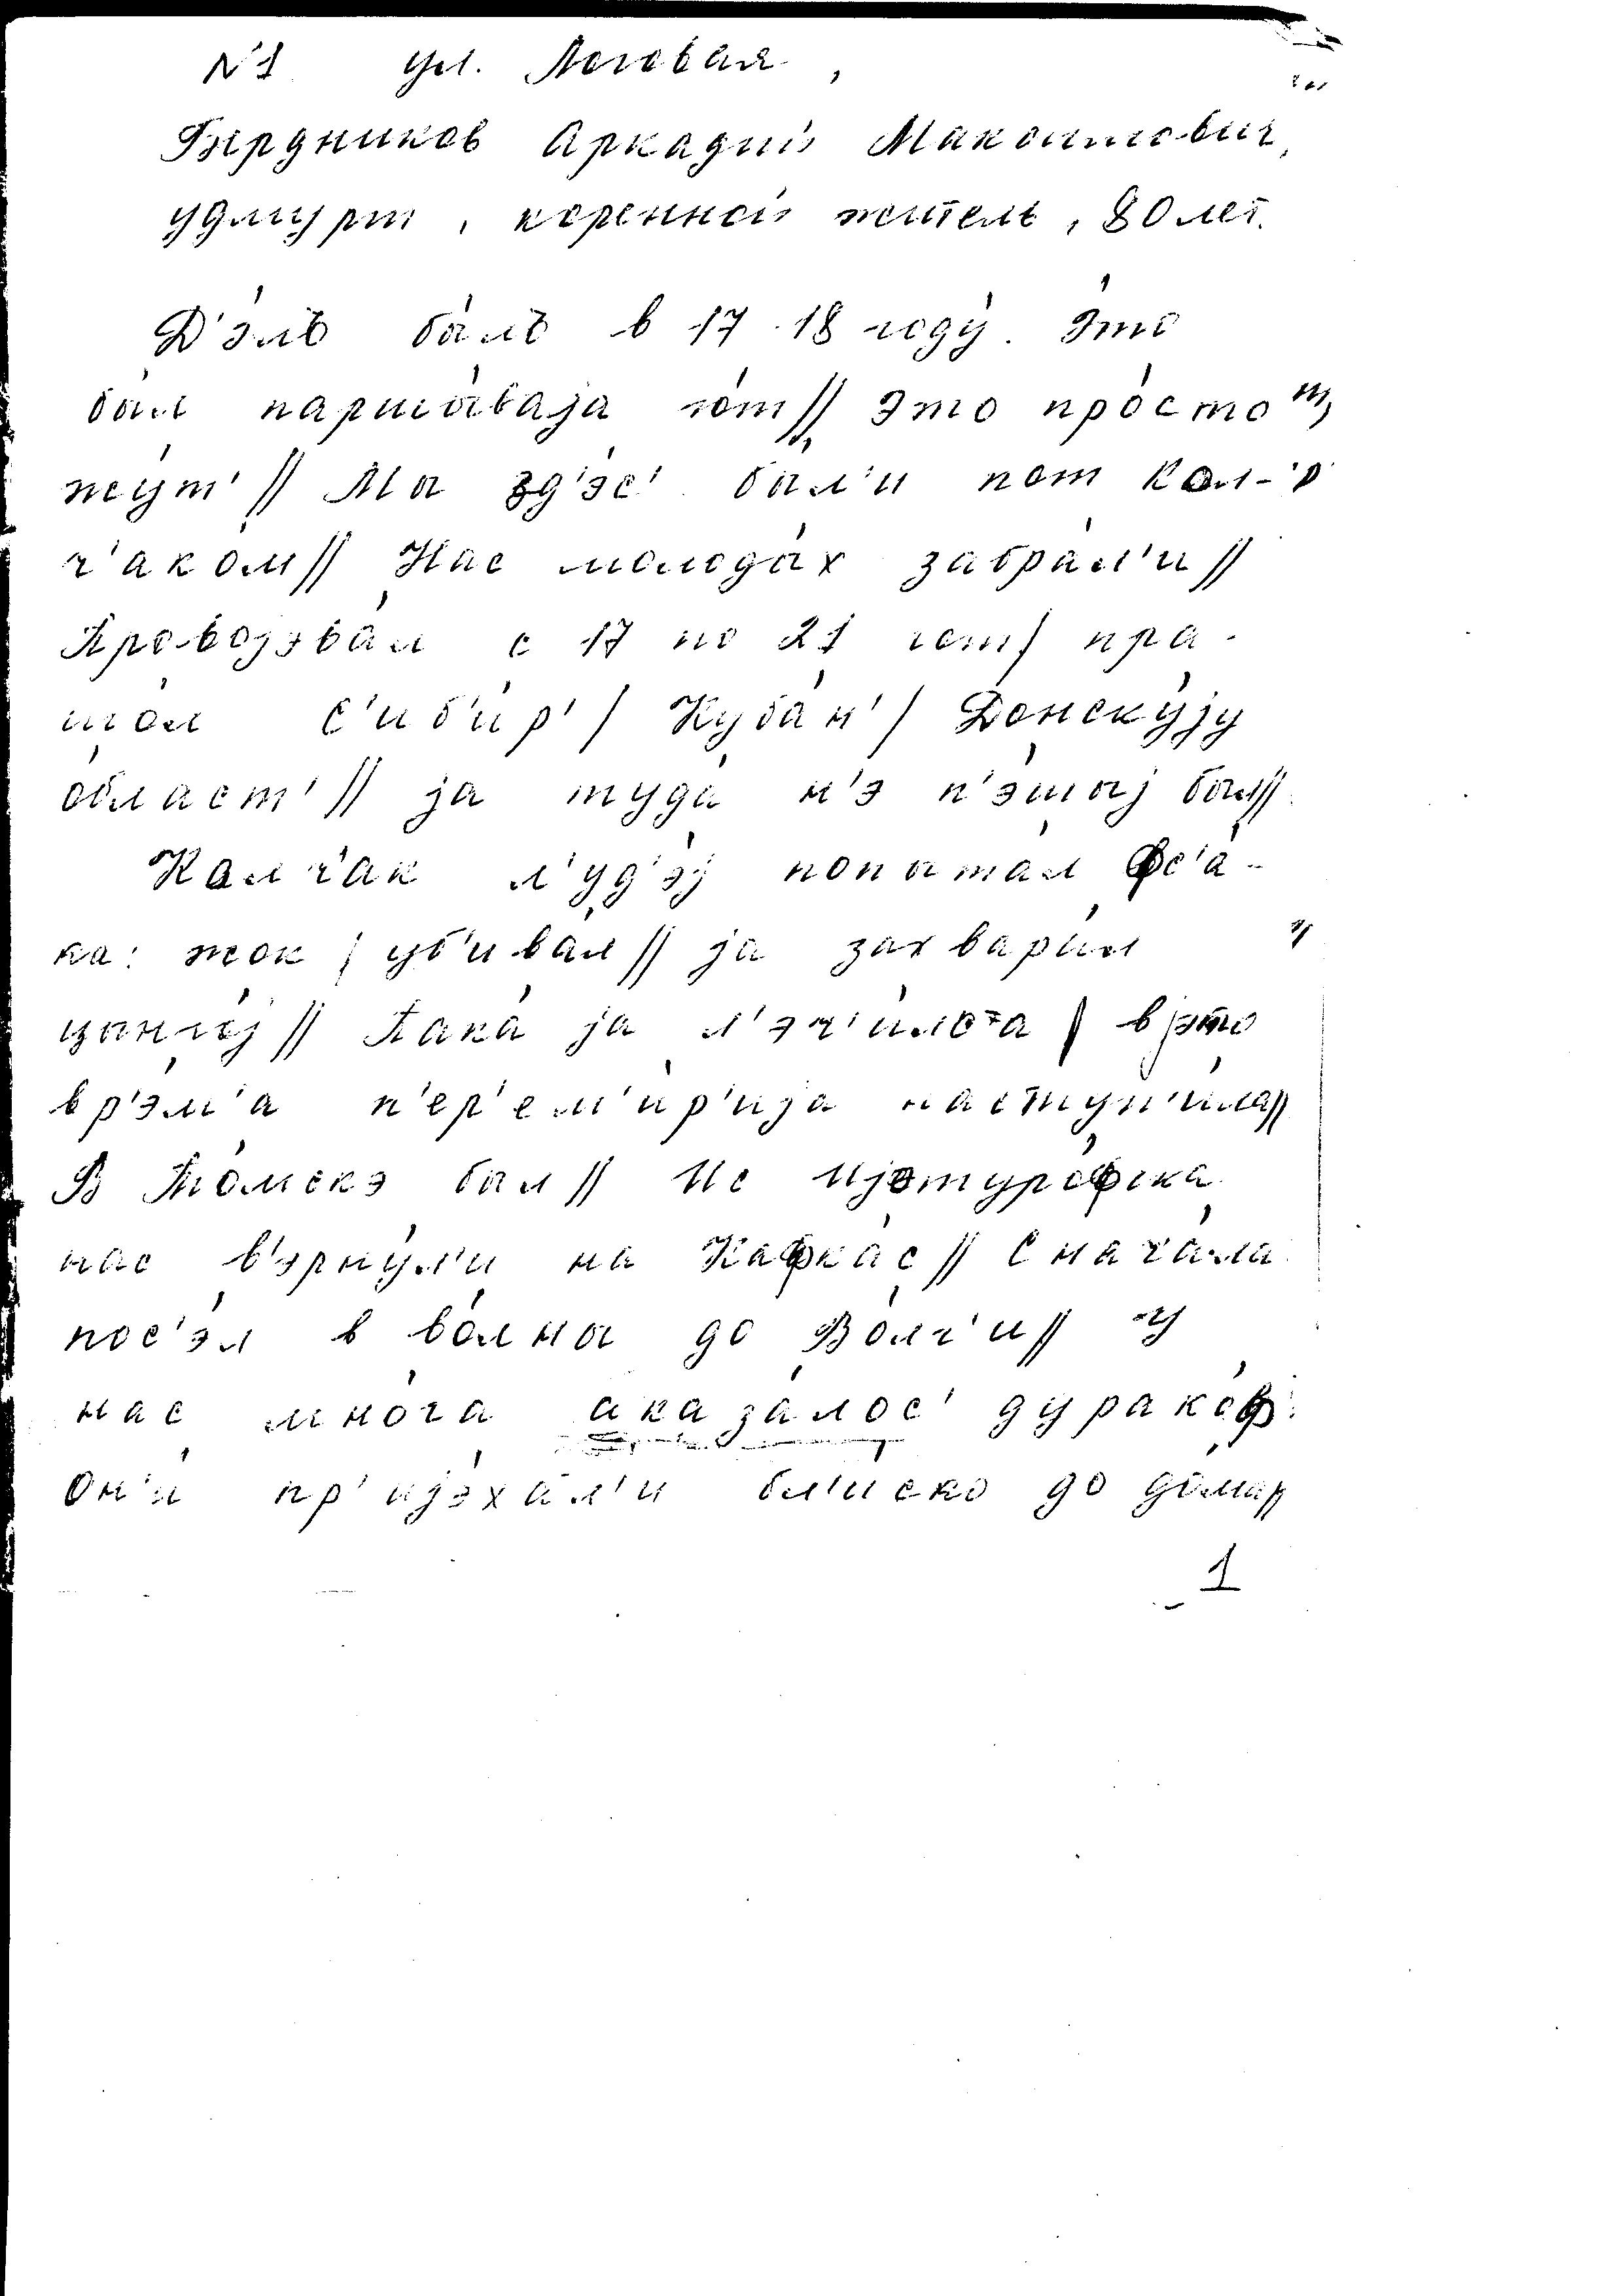 N 1 ул. Логовая,
Бердников Аркадий Максимович,
удмурт, коренной житель, 80 лет.
Д'э́лъ бы́лъ в 17-18 году́. Э́то
был паршы́ваjа го́т// Это про́сто
жут'// Мы зд'эс' бы́л'и пот Кол-
ч'аком// Нас молоды́х забра́л'и//
Провоjэва́л с 17 по 21 гот/ пра-
шол С'иб'и́р'/ Куба́н'/ Донску́jу
о́бласт'// jа туда́ н'э п'э́шыj был//
Колч'ак л'уд'э́j попыта́л фс'а́-
ка: жок/ уб'ива́л// jа захвары́л
цынго́j// Пака́ jа л'эч'и́лса/ в jэто
вр'э́м'а п'ер'ем'и́р'иjа наступ'и́ла//
В То́мскэ был// Ис
нас в'эрну́л'и на Кафка́с// Снача́ла
пос'э́л в до Во́лг'и// У
нас мно́га аказа́лос' дурако́ф:
Он'и́ пр'иjэха́л'и бл'и́ско до до́ма//
1